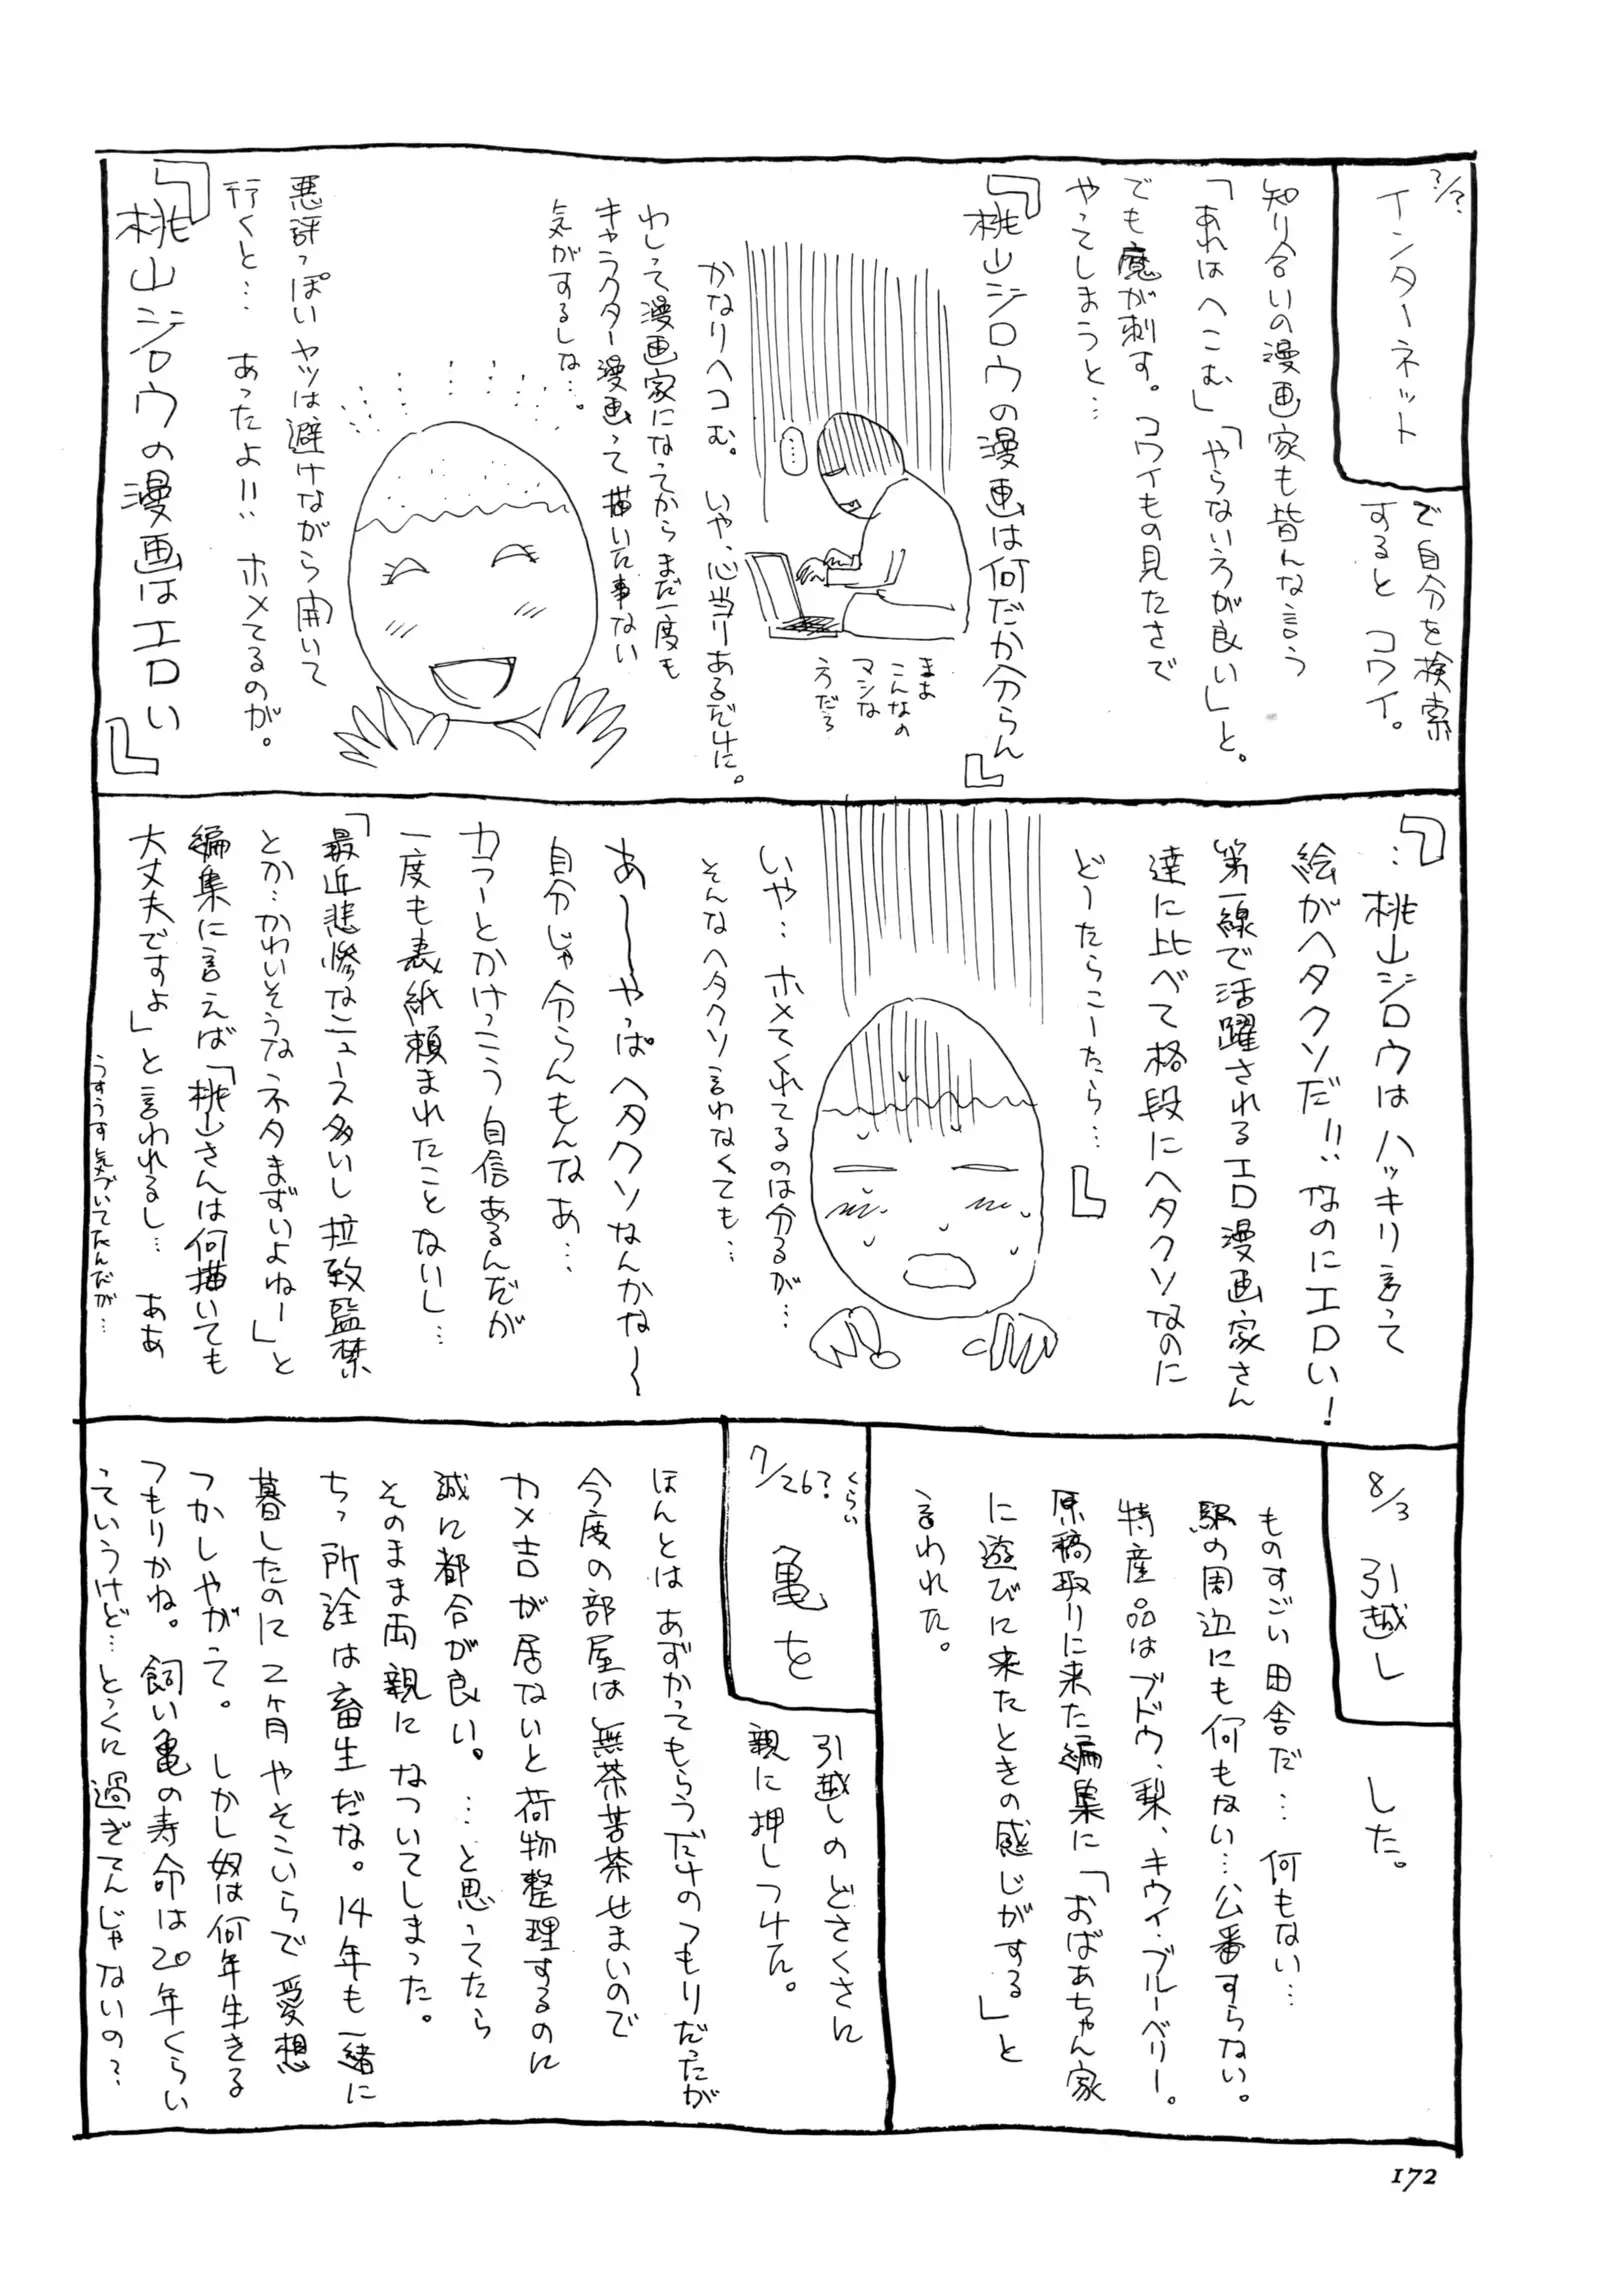 ?/?
インターネット
で自分を検索
するとコワイ。
知り合いの漫画家も皆んな言う
「あれはへこむ」「やらないうが良い」と。
でも魔が刺す。コワイもの見たさで
やってしまうと…
『桃山ジロウの漫画は何だか分らん』
まぁ
こんなの
マシな
うだろ
かなりヘコむ。いや、心当りあるだけに。
わしって漫画家になってからまだ一度も
キャラクター漫画って描いた事ない
気がするしな…。
悪評っぽいヤツは避けながら開いて
行くと…あったよ!!ホメてるのが。
『桃山ジロウの漫画はエロい』
『…桃山ジロウはハッキリ言って
絵がヘタクソだ!!なのにエロい!
第一線で活躍されるエロ漫画家さん
達に比べて格段にヘタクソなのに
どーたらこーたら…』
いや…ホメてくれてるのは分るが…
そんなヘタクソ言わなくても…
あ〜〜やっぱヘタクソなんかな〜
自分じゃ分らんもんなぁ…
カラーとかけっこう自信あるんだが
一度も表紙頼まれたことないし…
「最近悲惨なニュース多いし拉致監禁
とか…かわいそうなネタまずいよねー」と
編集に言えば「桃山さんは何描いても
大丈夫ですよ」と言われるし…ああ
うすうす気づいてたんだが…
8/3 引越し
した。
ものすごい田舎だ…何もない…
駅の周辺にも何もない…公番すらない。
特産品はブドウ、梨、キウイ・ブルーベリー。
原稿取りに来た編集に「おばあちゃん家
に遊びに来たときの感じがする」と
言われた。
7/26?くらい
亀を
引越しのどさくさに
親に押しつけた。
ほんとはあずかってもらうだけのつもりだったが
今度の部屋は無茶苦茶せまいので
カメ吉が居ないと荷物整理するのに
誠に都合が良い。…と思ってたら
そのまま両親になついてしまった。
ちっ所詮は畜生だな。14年も一緒に
暮したのに2ヶ月やそこいらで愛想
つかしやがって。しかし奴は何年生きる
つもりかね。飼い亀の寿命は20年くらい
っていうけど…とっくに過ぎてんじゃないの?
172